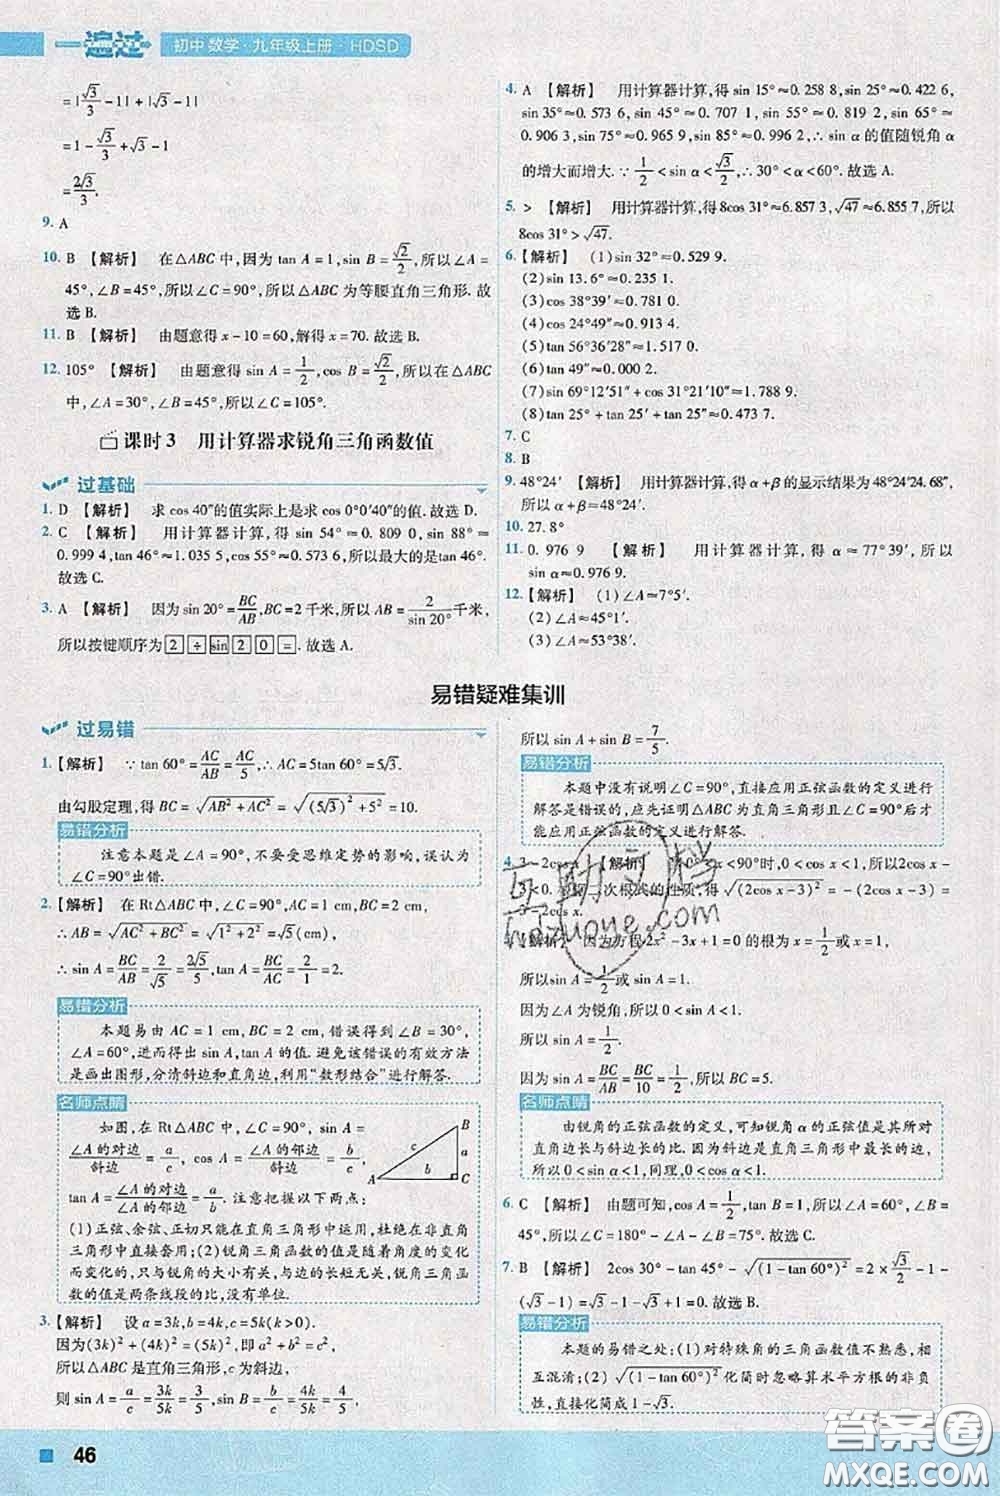 一遍过 初中 数学·九年级上册·HDSD
=|√3/3-1|+|√3-1|
=1-√3/3+√3-1
=2√3/3.
9. A
10. B 【解析】 在△ABC中,因为tan A=1,sin B=√2/2,所以∠A=
45°,∠B=45°,所以∠C=90°,所以△ABC为等腰直角三角形.故
选B.
11. B 【解析】 由题意得x-10=60,解得x=70.故选B.
12. 105° 【解析】 由题意得sin A=1/2,cos B=√2/2,所以在△ABC
中,∠A=30°,∠B=45°,所以∠C=105°.
课时3 用计算器求锐角三角函数值
过基础
1. D 【解析】 求cos 40″的值实际上是求cos 0°0′40″的值.故选D.
2. C 【解析】 用计算器计算,得sin 54°≈0.809 0,sin 88°≈
0.999 4,tan 46°≈1.035 5,cos 55°≈0.573 6,所以最大的是tan 46°.
故选C.
3. A 【解析】 因为sin 20°=BC/AB,BC=2千米,所以AB=2/sin 20°千米,
所以按键顺序为2÷sin20=.故选A.
4. A 【解析】 用计算器计算,得sin 15°≈0.258 8,sin 25°≈0.422 6,
sin 35°≈0.573 6,sin 45°≈0.707 1,sin 55°≈0.819 2,sin 65°≈
0.906 3,sin 75°≈0.965 9,sin 85°≈0.996 2,∴sin α的值随锐角α
的增大而增大.∵1/2<sin α<√3/2,∴30°<α<60°.故选A.
5. > 【解析】 用计算器计算,得8cos 31°≈6.857 3,√47≈6.855 7,所以
8cos 31°>√47.
6. 【解析】 (1)sin 32°≈0.529 9.
(2)sin 13.6°≈0.235 1.
(3)cos 38°39′≈0.781 0.
(4)cos 24°49″≈0.913 4.
(5)tan 56°36′28″≈1.517 0.
(6)tan 49″≈0.000 2.
(7)sin 69°12′51″+cos 31°12′10″≈1.788 9.
(8)tan 25°+tan 25′≈0.473 7.
7. C
8. B
9. 48°24′ 【解析】 用计算器计算,得α+β的显示结果为48°24′24.68″,
所以α+β≈48°24′.
10. 27.8°
11. 0.976 9 【解析】 用计算器计算,得α≈77°39′,所以
sin α≈0.976 9.
12. 【解析】 (1)∠A≈7°5′.
(2)∠A≈45°1′.
(3)∠A≈53°38′.
易错疑难集训
过易错
1. 【解析】 ∵tan 60°=AC/AB=AC/5,∴AC=5tan 60°=5√3.
由勾股定理,得BC=√(AB²+AC²)=√((5√3)²+5²)=10.
易错分析
注意本题是∠A=90°,不要受思维定势的影响,误认为
∠C=90°出错.
2. 【解析】 在Rt△ABC中,∠C=90°,AC=1 cm,BC=2 cm,
∴AB=√(AC²+BC²)=√(1²+2²)=√5(cm),
∴sin A=BC/AB=2/√5=2√5/5,tan A=BC/AC=2/1=2.
易错分析
本题易由AC=1 cm,BC=2 cm,错误得到∠B=30°,
∠A=60°,进而得出sin A,tan A的值.避免该错误的有效方法
是画出图形,分清斜边和直角边,利用“数形结合”进行解答.
名师点睛
如图,在Rt△ABC中,∠C=90°,sin A=
∠A的对边/斜边=a/c,cos A=∠A的邻边/斜边=b/c,
tan A=∠A的对边/∠A的邻边=a/b.注意把握以下两点:
B
c
a
b
A
C
(1)正弦、余弦、正切只能在直角三角形中运用,杜绝在非直角
三角形中直接套用;(2)锐角三角函数的值是随着角度的变化
而变化的,只与锐角的大小有关,与边的长短无关,锐角三角函
数的值是两条线段的比,没有单位.
3. 【解析】 设a=3k,b=4k,c=5k(k>0).
因为(3k)²+(4k)²=(5k)²,即a²+b²=c²,
所以△ABC是直角三角形,c为斜边,
则sin A=a/c=3k/5k=3/5,sin B=b/c=4k/5k=4/5,
所以sin A+sin B=7/5.
易错分析
本题中没有说明∠C=90°,直接应用正弦函数的定义进行
解答是错误的,应先证明△ABC为直角三角形且∠C=90°后才
能应用正弦函数的定义进行解答.
4. 3-2cos x 【解析】 0°<x<90°时,0<cos x<1,所以2cos x-
3<0.根据二次根式的性质,得√((2cos x-3)²)=-(2cos x-3)=
3-2cos x.
5. 【解析】 因为方程2x²-3x+1=0的根为x=1/2或x=1,
所以sin A=1/2或sin A=1.
因为∠A为锐角,所以0<sin A<1.
所以sin A=1/2.
因为sin A=BC/AB=BC/10=1/2,所以BC=5.
名师点睛
由锐角的正弦函数的定义,可知锐角α的正弦值是其所对
直角边长与斜边长的比.因为斜边是直角三角形中最长的边,
所以0<sin α<1,同理,0<cos α<1.
6. C 【解析】 由题可知,cos A=1/2,tan B=1,所以∠A=60°,∠B=
45°,所以∠C=180°-∠A-∠B=75°.故选C.
7. B 【解析】 2cos 30°-tan 45°-√((1-tan 60°)²)=2×√3/2-1-
(√3-1)=√3-1-√3+1=0.故选B.
易错分析
本题的易错之处:(1)对特殊角的三角函数值不熟悉,相
互混淆;(2)√((1-tan 60°)²)化简时忽略算术平方根的非负
性,直接化简成1-√3.
互助文档
hdzuoye.com
46
答案圈
MXQE.COM